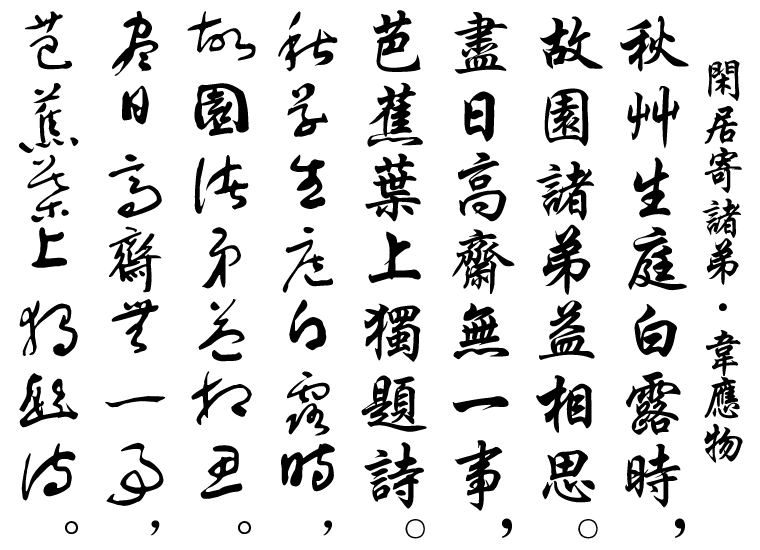 閑居寄諸弟・韋應物
秋艸生庭白露時，
故園諸弟益相思。
盡日高齋無一事，
芭蕉葉上獨題詩。
秋草生庭白露時，
故園諸弟益相思。
盡日高齋無一事，
芭蕉葉上獨題詩。